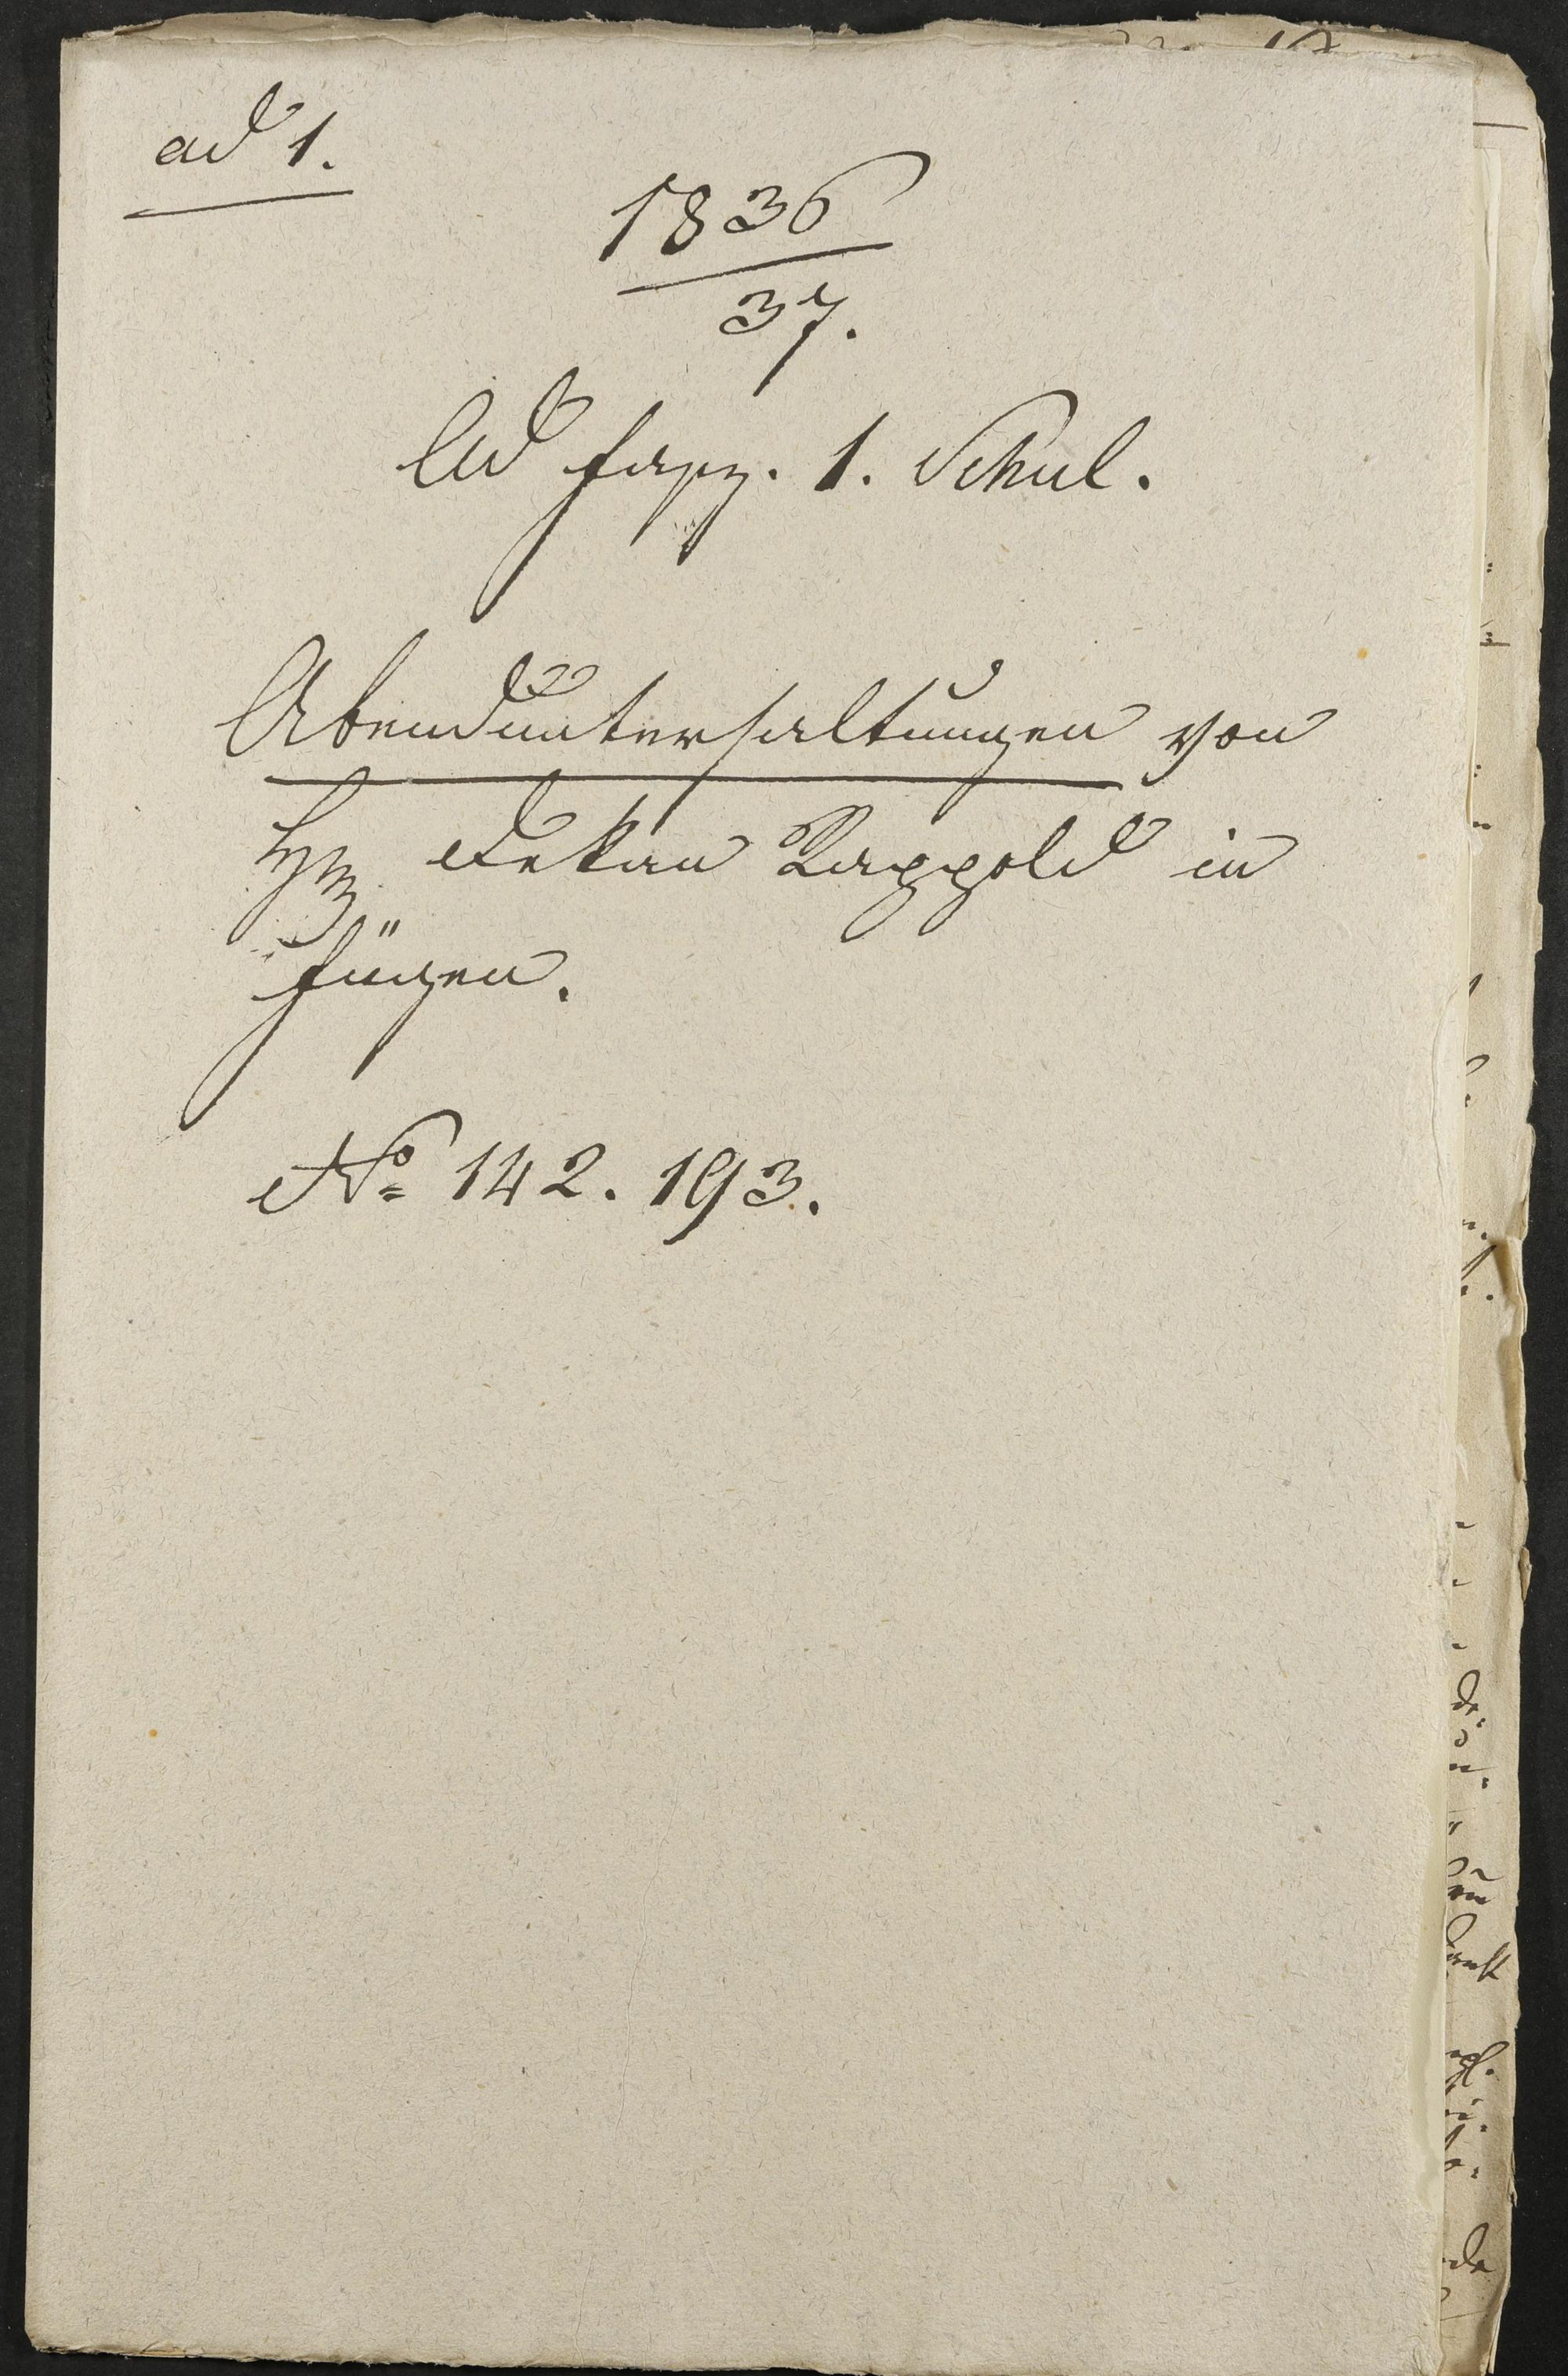 ad 1.
1836
37.
Ad fasz. 1. Schul.
Abendunterhaltungen von
H. Dekan Rappold in
Fügen.
No 142. 193.